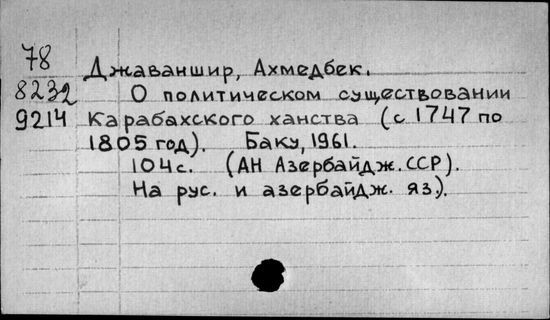 78
Джаваншир, Ахмедбек.
8232 О политическом существовании
9214 Карабахского ханства (с 1747 по
1805 год). Баку, 1961.
104с. (АН Азербайдж. ССР).
На рус. и азербайдж. яз.).